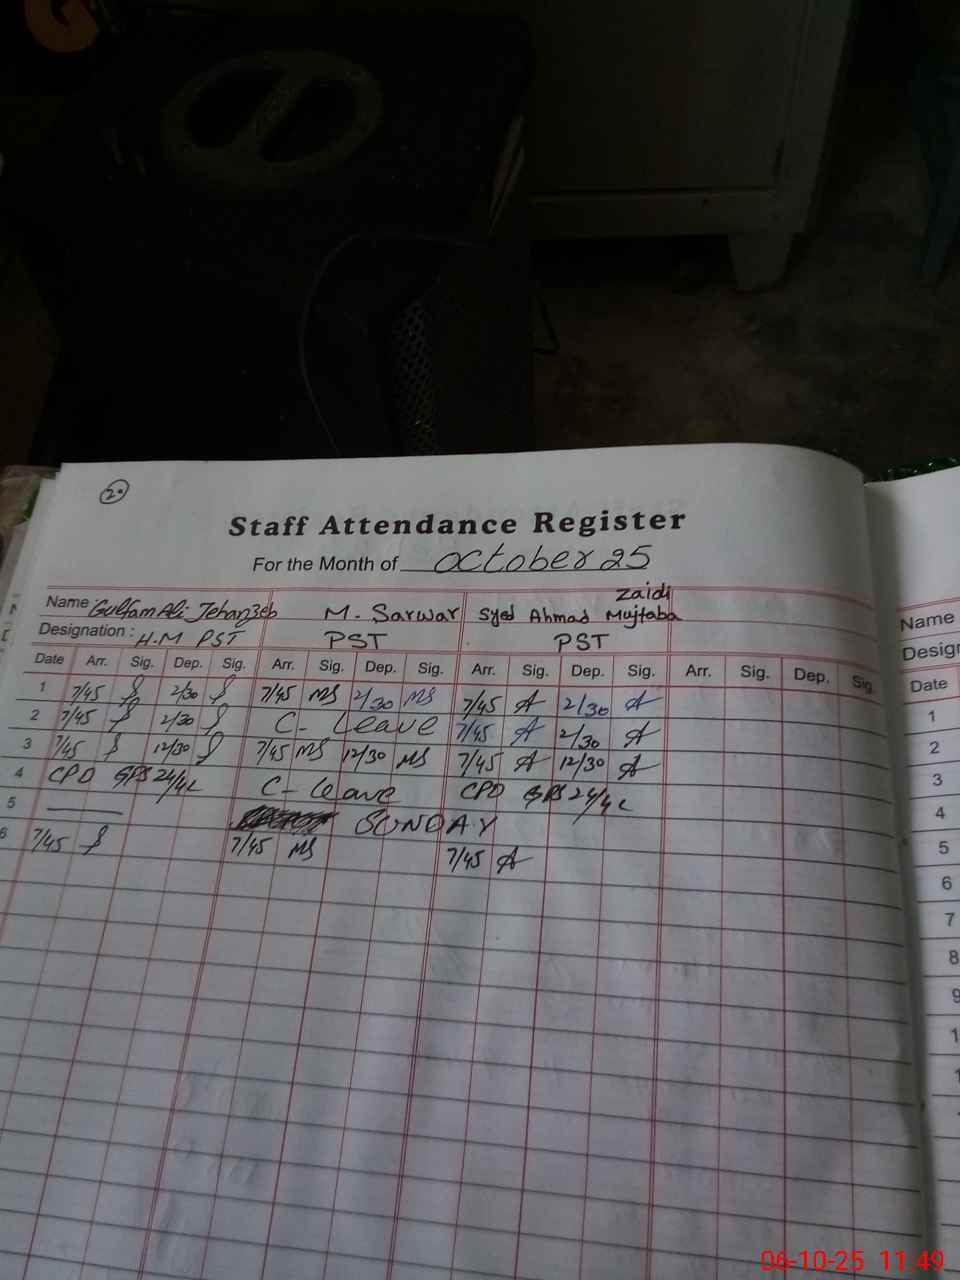 20
Staff Attendance Register
For the Month of October 25
Zaidi
Name Gulfam Ali Jehanzeb M. Sarwar Syed Ahmad Mujtaba
Designation : H.M PST PST PST
Date Arr. Sig. Dep. Sig. Arr. Sig. Dep. Sig. Arr. Sig. Dep. Sig. Arr. Sig. Dep. Sig.
1 7/45 2/30 7/45 MS 2/30 MS 7/45 A 2/30 A
2 7/45 2/30 C- Leave 7/45 A 2/30 A
3 7/45 12/30 7/45 MS 12/30 MS 7/45 A 12/30 A
4 CPD GPS 24/4L C- Leave CPD GPS 24/4L
5 SUNDAY
6 7/45 7/45 MS 7/45 A
Name
Date
1
2
3
4
5
6
7
8
9
06-10-25 11:49